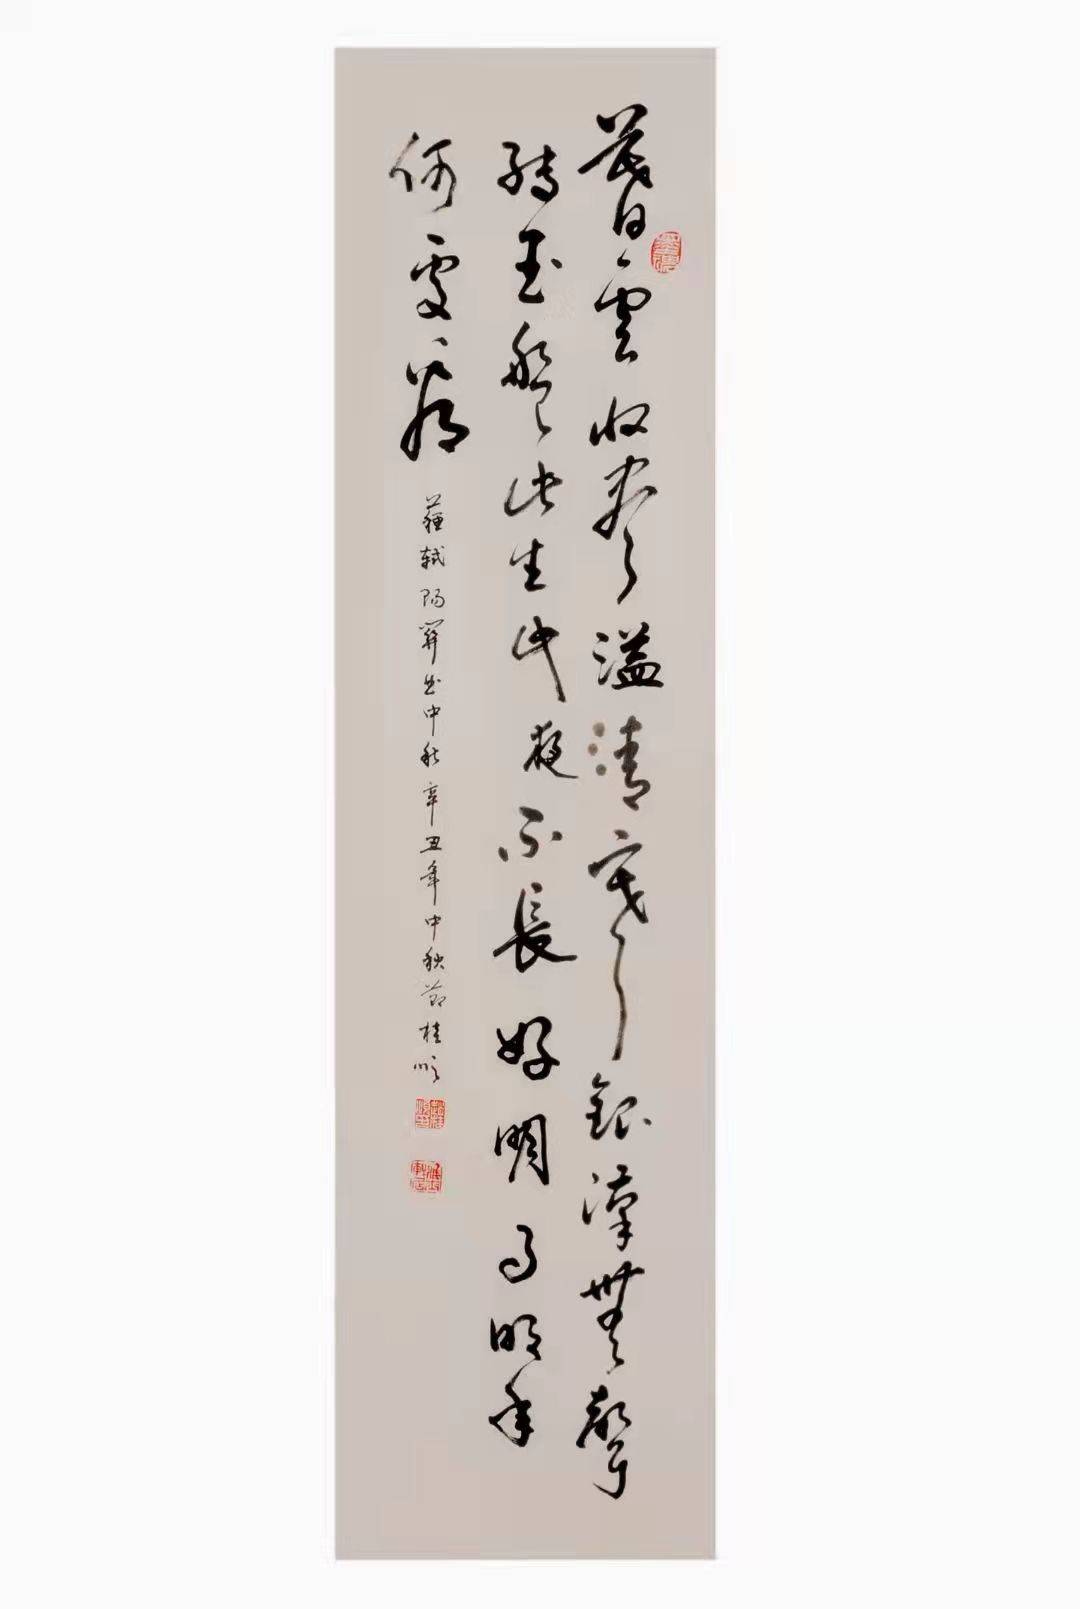 暮雲收盡溢清寒銀漢無聲
轉玉盤此生此夜不長好明月明年
何處看
蘇軾陽關曲中秋辛丑年中秋節桂順